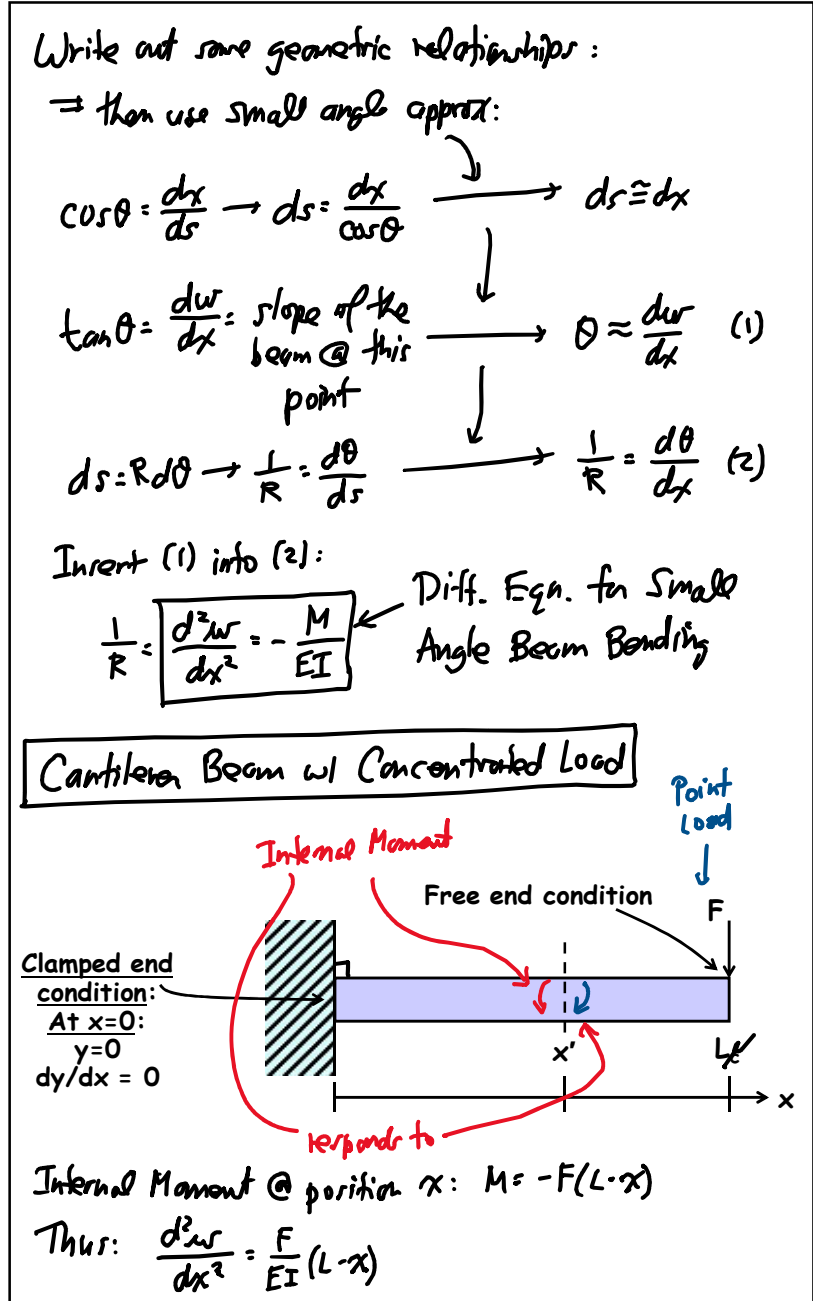 Write out some geometric relationships:
⇒ then use small angle approx:
cosθ = dx/ds → ds = dx/cosθ → ds ≅ dx
tanθ = dw/dx = slope of the beam @ this point → θ ≈ dw/dx (1)
ds = Rdθ → 1/R = dθ/ds → 1/R = dθ/dx (2)
Insert (1) into (2):
1/R = d²w/dx² = - M/EI
Diff. Eqn. for Small
Angle Beam Bending
Cantilever Beam w/ Concentrated Load
Point
Load
Internal Moment
Free end condition
F
Clamped end
condition:
At x=0:
y=0
dy/dx = 0
x'
L
x
responds to
Internal Moment @ position x: M = -F(L-x)
Thus: d²w/dx² = F/EI (L-x)